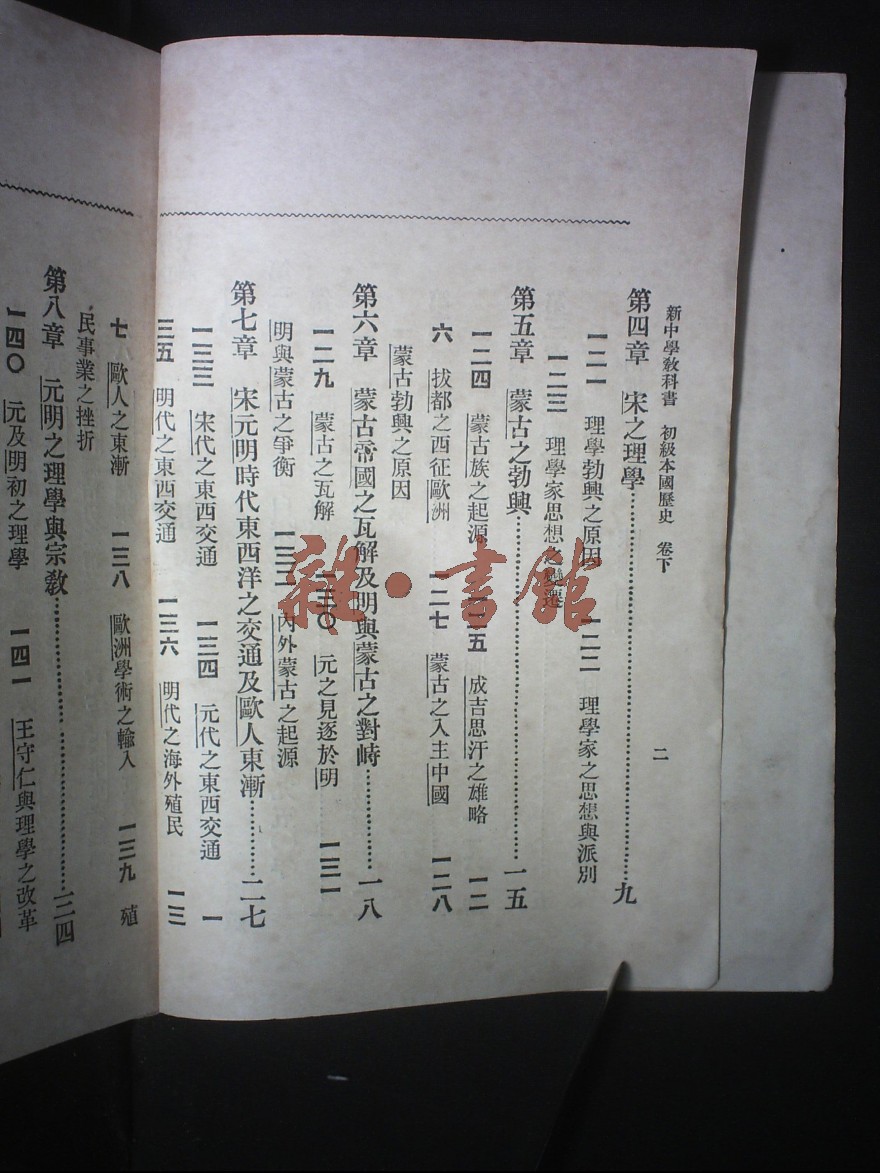 新中學教科書 初級本國歷史 卷下
二
第四章 宋之理學……九
一二一 理學勃興之原因 一二二 理學家之思想與派別
一二三 理學家思想之變遷
第五章 蒙古之勃興……一五
一二四 蒙古族之起源 一二五 成吉思汗之雄略 一二
六 拔都之西征歐洲 一二七 蒙古之入主中國 一二八
蒙古勃興之原因
第六章 蒙古帝國之瓦解及明與蒙古之對峙……一八
一二九 蒙古之瓦解 一三〇 元之見逐於明 一三一
明與蒙古之爭衡 一三二 內外蒙古之起源
第七章 宋元明時代東西洋之交通及歐人東漸……二七
一三三 宋代之東西交通 一三四 元代之東西交通 一
三五 明代之東西交通 一三六 明代之海外殖民 一三
七 歐人之東漸 一三八 歐洲學術之輸入 一三九 殖
民事業之挫折
第八章 元明之理學與宗教……三四
一四〇 元及明初之理學 一四一 王守仁與理學之改革
雜·書館